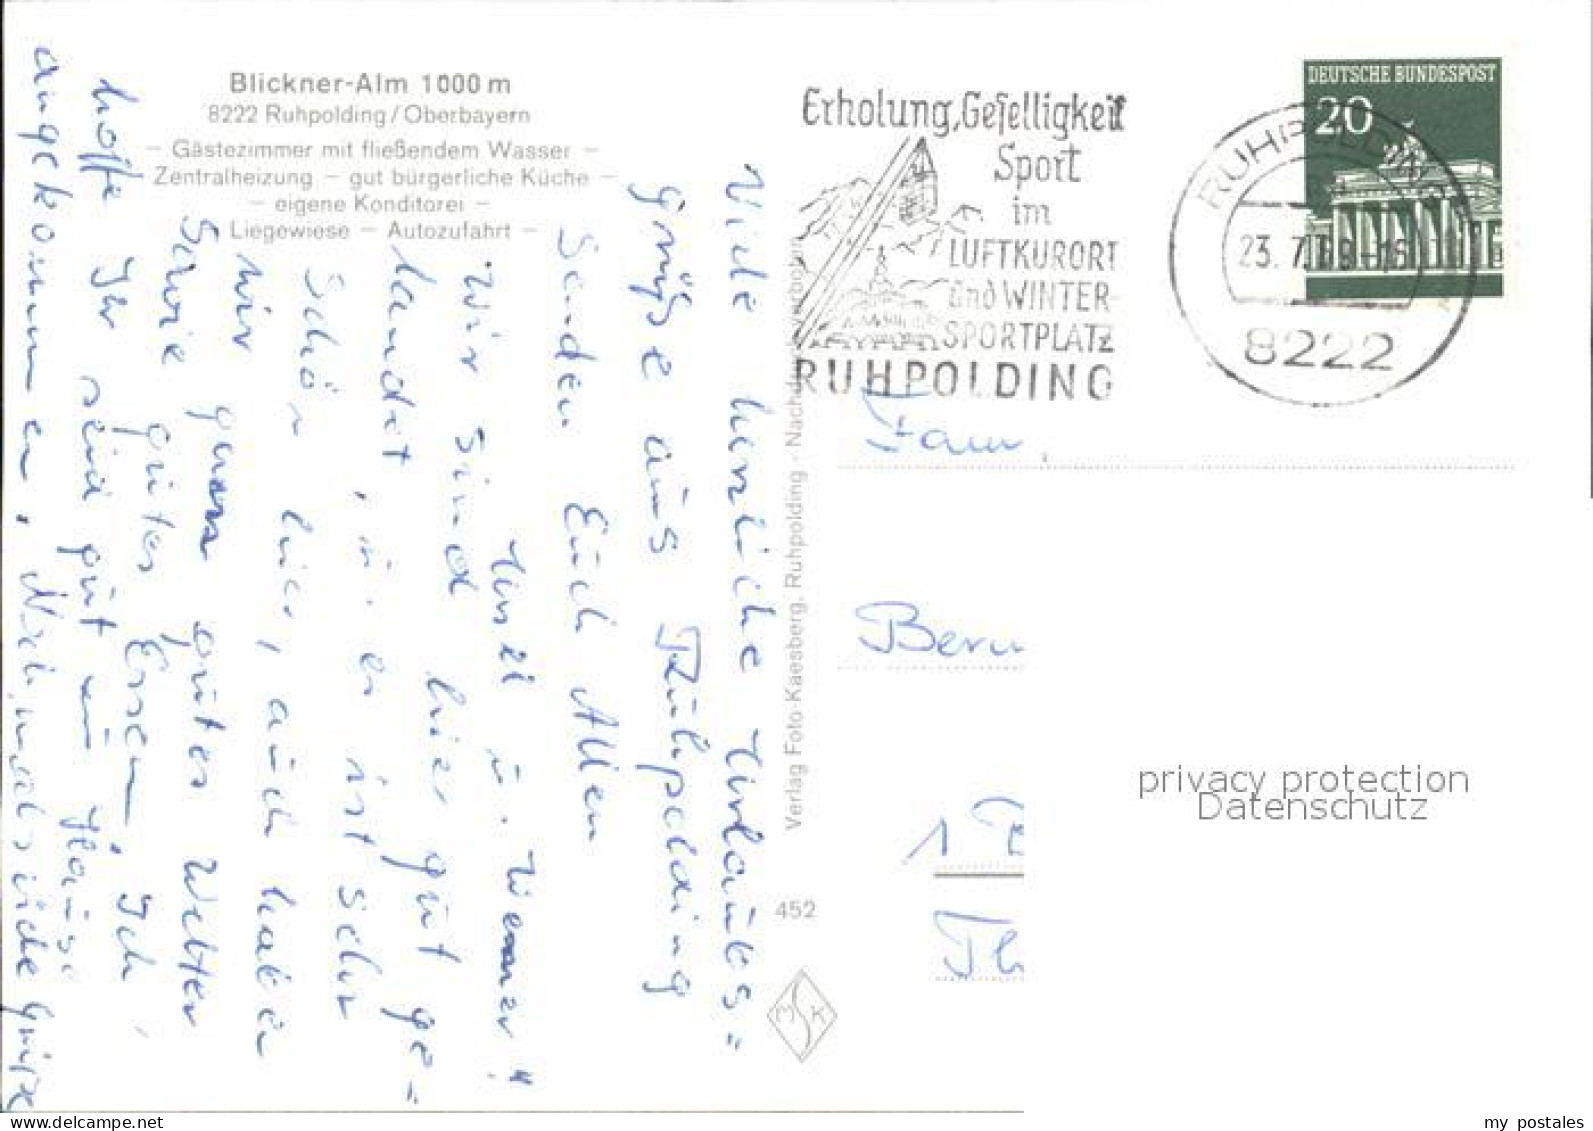 Blickner-Alm 1000 m
8222 Ruhpolding/Oberbayern
– Gästezimmer mit fließendem Wasser –
Zentralheizung – gut bürgerliche Küche –
– eigene Konditorei –
Liegewiese – Autozufahrt –
Viele herzliche Urlaubs=
grüße aus Ruhpolding
senden Euch Allen
Uschi u. Werner!
Wir sind hier gut ge=
landet, u. es ist sehr
schön hier, auch haben
wir ganz gutes Wetter
sowie gutes Essen, Ich
hoffe Ihr seid gut zu Hause
angekommen, Nochmals viele Grüße
Verlag Foto-Kaesberg, Ruhpolding - Nachdruck verboten
452
M S K
Erholung, Geselligkeit
Sport
im
LUFTKURORT
und WINTER-
SPORTPLATZ
RUHPOLDING
RUHPOLDING
23. 7. 69-16
8222
DEUTSCHE BUNDESPOST
20
Fam.
Bern
1
Th
privacy protection
Datenschutz
my postales